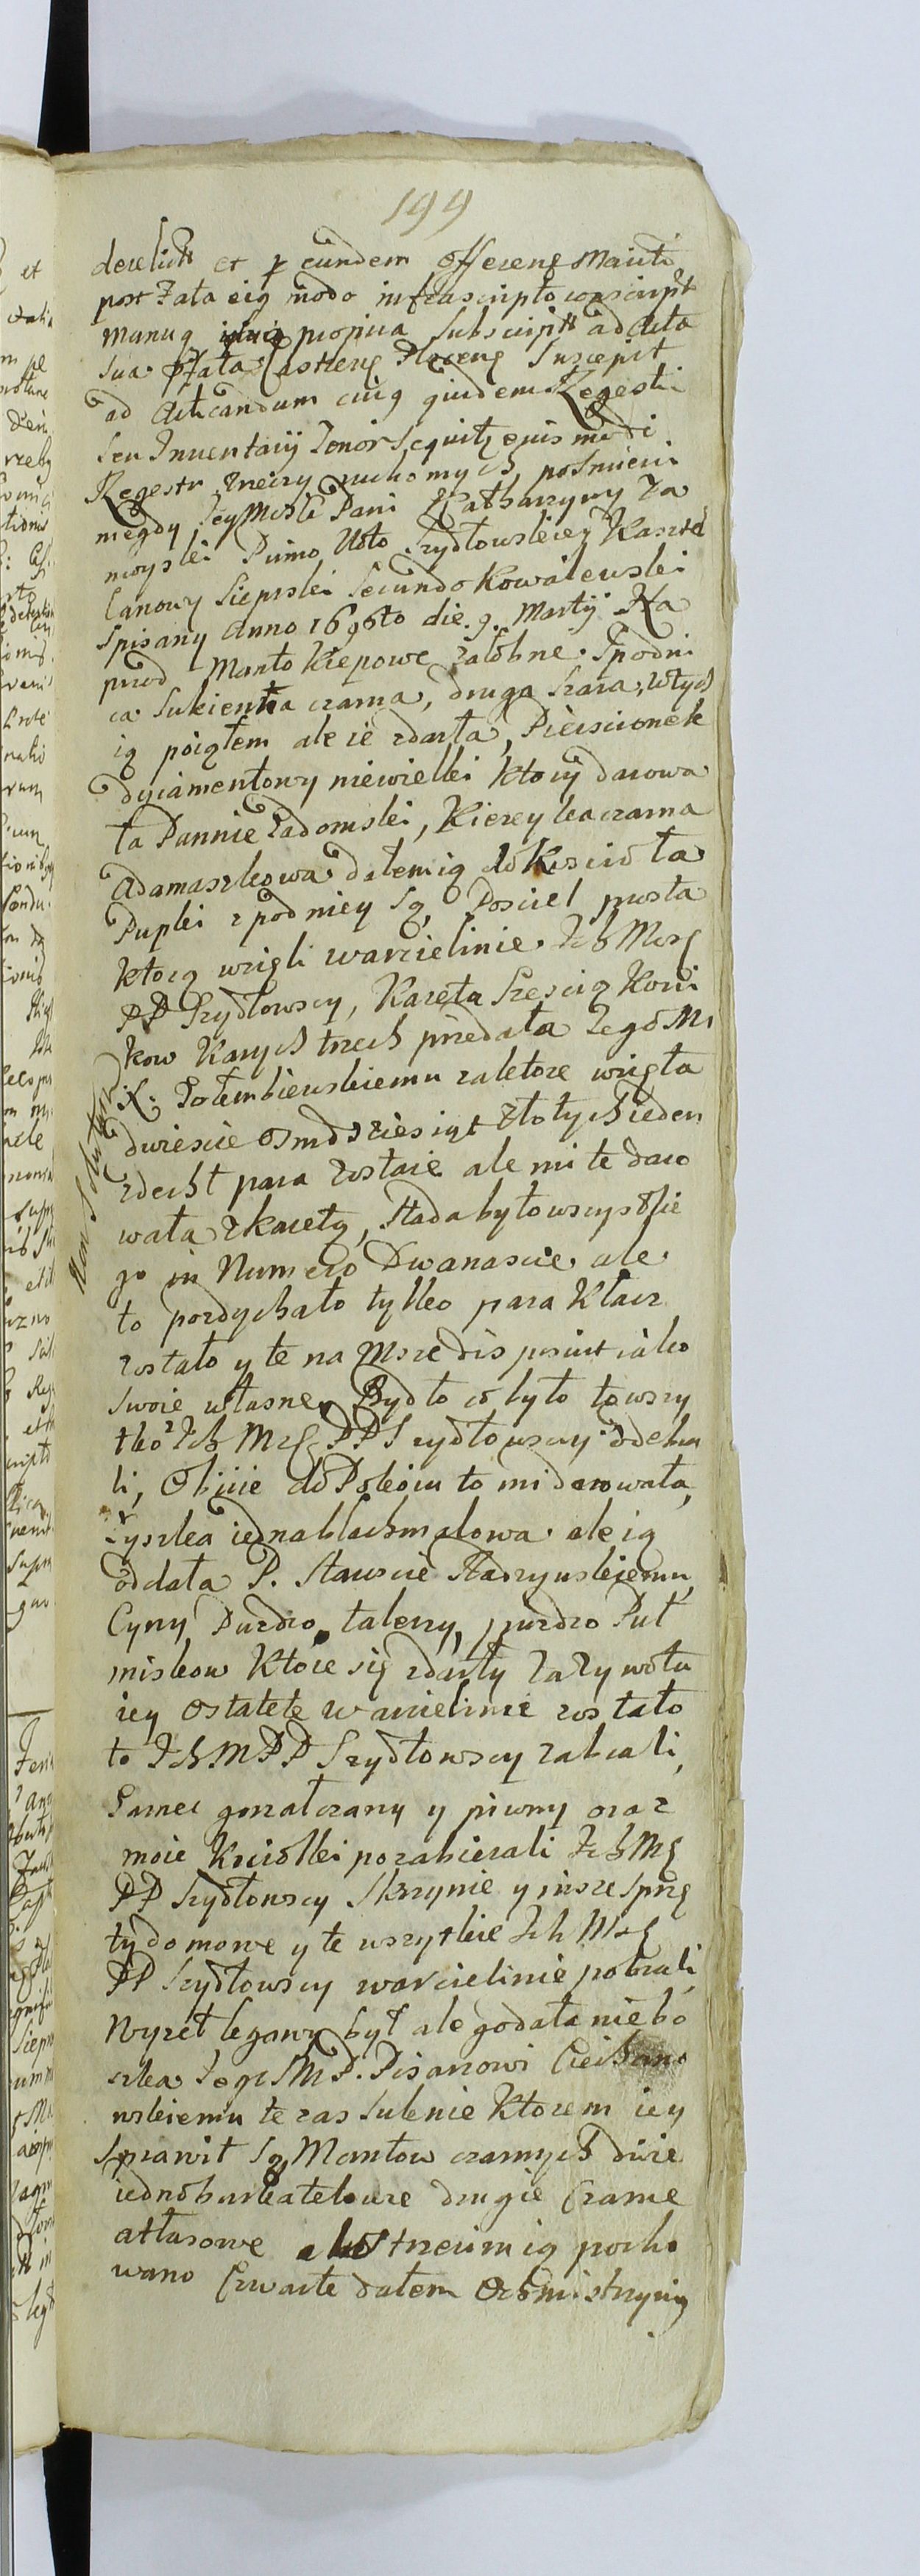 199
derelicti et p eundem offerenę Mariti
post Fata eią modo infrascripto conscript
Manuq propria Subscript ad Acta
Sua Pfata Castreną Płoceną Suscepit
ad Acticandum cuiq quidem Regestri
Seu Inuentarij Tenor Sequitą eius modi
Regestr rzeczy ruchomych, pośmierci
niegdy JeyMości Pani Katharzyny Za
moyski Primo Voto Szydłowskiey Kasztel
lanowy Sierpski Secundo Kowalewski
Spisany Anno 1696to die. 9. Martij Na
przod Manto Krepowe załobne. Spodni
ca Sukienna czarna, druga Szara, wtych
ią poiąłem ale ie zdarła, Pierscionek
dyiamentowy niewielki ktory darowa
ła Pannie Radomski, Kierey ka czarna
Adamaszkowa dałem ią do Koscioła
Pupki z pod niey Są, Posciel prosta
ktorą wzięli warcielinie Ich Mość
PP Szydłowscy, Kareta Szescią Koni
kow Karych trzech przedała Jegō Mi
X. Gołembiewskiemu zaktore wzięła
dwiescie Osmdziesiąt złotych ieden
zdechł para zostaie ale mi te daro
wała zkaretą, Stada było wszystkie
go in Numero Dwanascie ale
to pozdychało tylko para Klacz
zostało y te na Msze dis posuit iako
Swoie własne. Bydło co było to wszy
tko Ich Mść PP Szydłowscy odebra
li, Obicie do Pokoiu to mi darowała,
Łyszka iedna blachmalowa ale ią
oddała P. Stauscie Stadzynskiemu,
Cyny Purdzo talerzy, purdzo Puł
miskow Ktore się zdarły Zażywotu
iey Ostatek w arcielinie zostało
to Ich.M PP Szydłowscy zabrali,
Garnec gorzałczany y piwny oraz
moie Krziołki pozabierali Ich Mć
PP Szydłowscy Skrzynie y insze Sprzę
ty domowe y te wszytkie Ich Mść
PP Szydłowscy warcielinie pobrali,
Wyzeł legawy był ale godała niebo
szka Jegō M P. Pisarzowi Ciecha no
wskiemu teraz Suknie Ktorem iey
Sprawił Są Mantow czarnych dwie
iedno burkatelowe drugie Czarne
atłasowe trzecim ią pocho
wano Czwarte dałem Ochmistrzynią